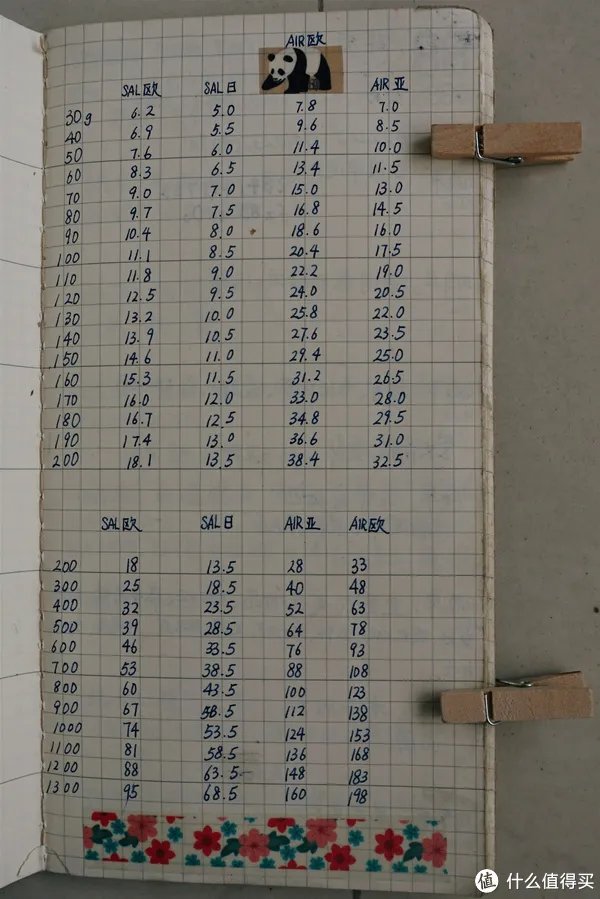 AIR欧
SAL欧 SAL日 AIR亚
30g 6.2 5.0 7.8 7.0
40 6.9 5.5 9.6 8.5
50 7.6 6.0 11.4 10.0
60 8.3 6.5 13.4 11.5
70 9.0 7.0 15.0 13.0
80 9.7 7.5 16.8 14.5
90 10.4 8.0 18.6 16.0
100 11.1 8.5 20.4 17.5
110 11.8 9.0 22.2 19.0
120 12.5 9.5 24.0 20.5
130 13.2 10.0 25.8 22.0
140 13.9 10.5 27.6 23.5
150 14.6 11.0 29.4 25.0
160 15.3 11.5 31.2 26.5
170 16.0 12.0 33.0 28.0
180 16.7 12.5 34.8 29.5
190 17.4 13.0 36.6 31.0
200 18.1 13.5 38.4 32.5
SAL欧 SAL日 AIR亚 AIR欧
200 18 13.5 28 33
300 25 18.5 40 48
400 32 23.5 52 63
500 39 28.5 64 78
600 46 33.5 76 93
700 53 38.5 88 108
800 60 43.5 100 123
900 67 112 138
1000 74 53.5 124 153
1100 81 58.5 136 168
1200 88 63.5 148 183
1300 95 68.5 160 198
值 什么值得买